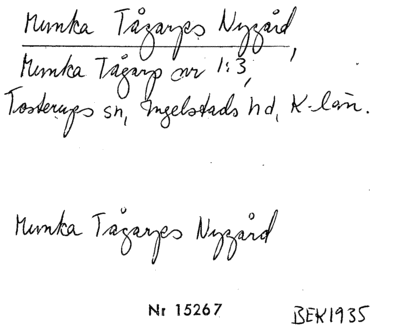 Munka Tågarps Nygård,
Munka Tågarp nr 1:3,
Tosterups sn, Ingelstads hd, K-län.
Munka Tågarps Nygård
Nr 15267 BEK1935